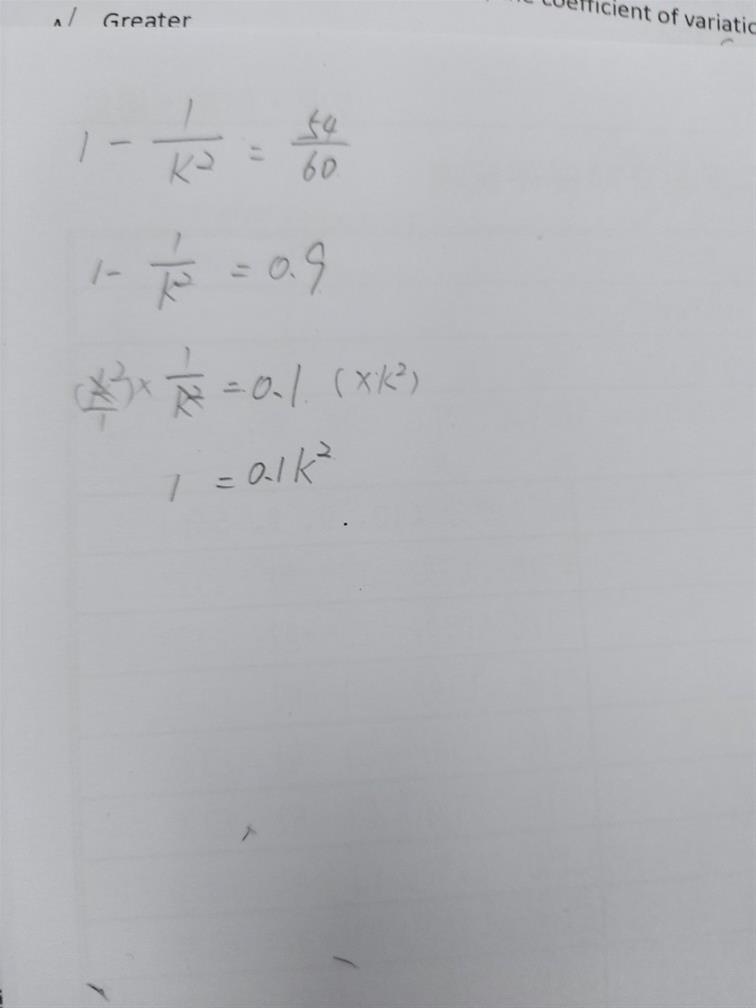 A/ Greater
coefficient of variatio
1 - 1/K² = 54/60
1 - 1/k² = 0.9
(k²/1) × 1/k² = 0.1 (×k²)
1 = 0.1k²